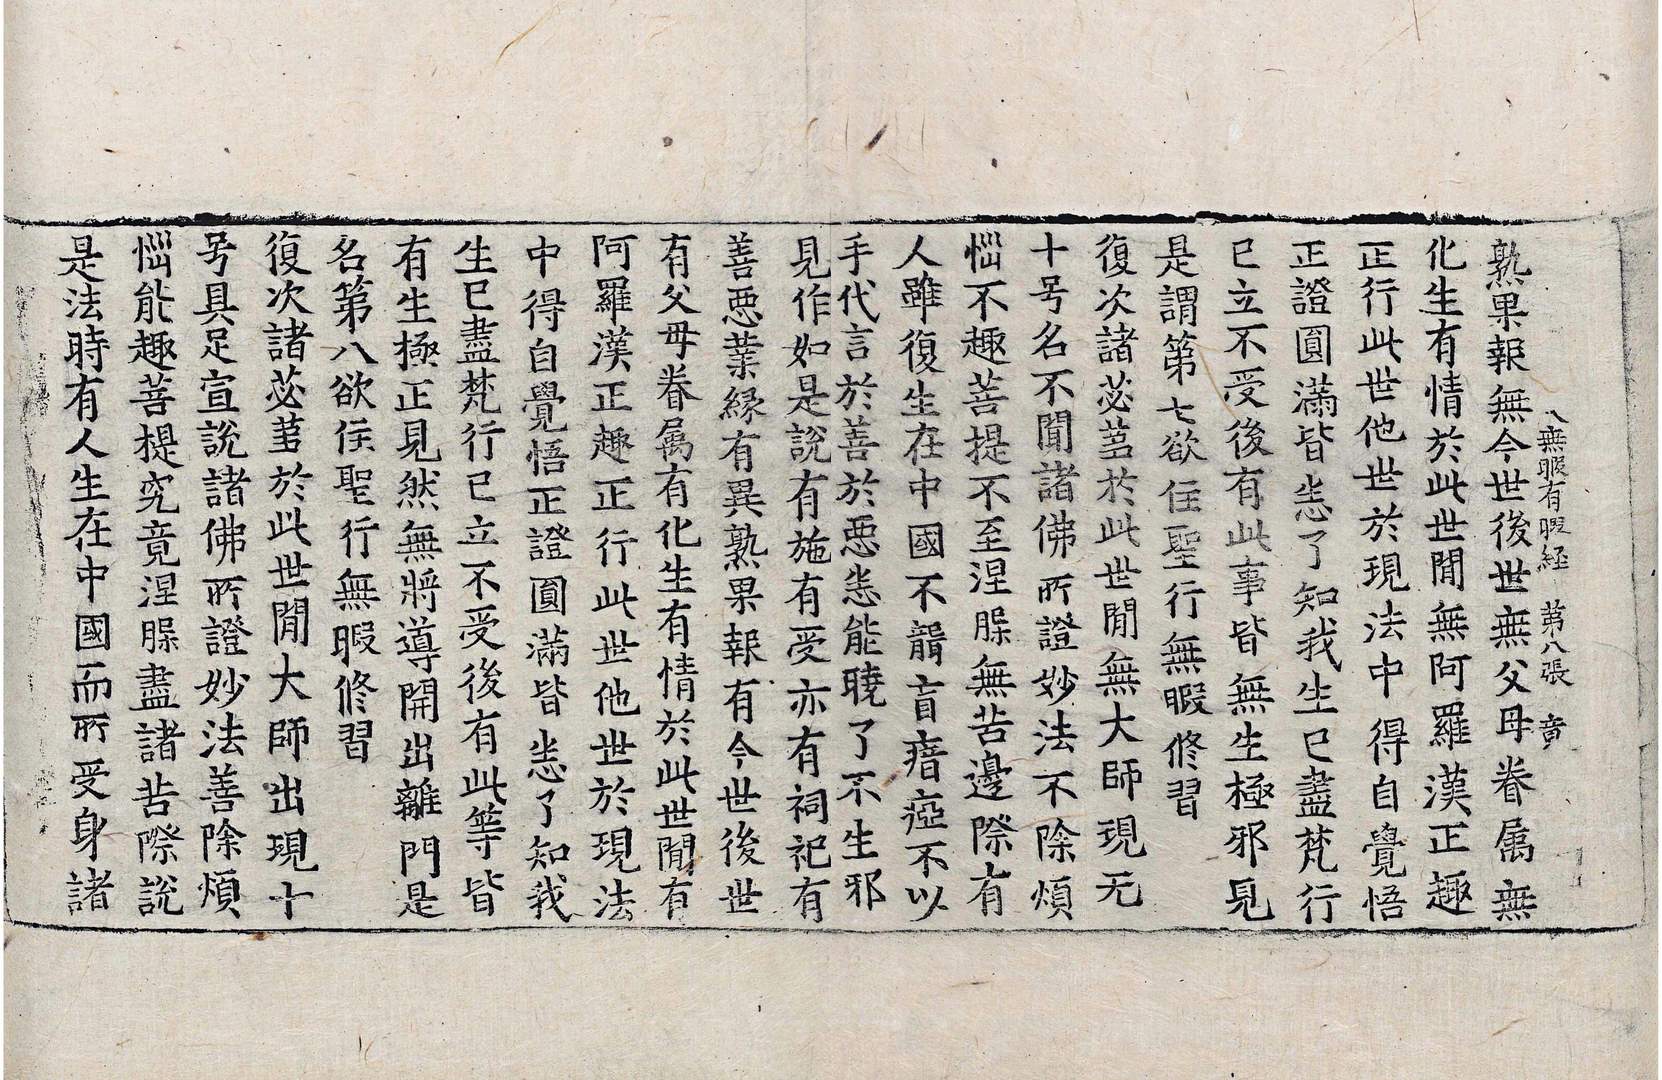 八無暇有暇経 第八張 竟
熟果報無今世後世無父母眷属無
化生有情於此世閒無阿羅漢正趣
正行此世他世於現法中得自覺悟
正證圓滿皆悉了知我生已盡梵行
已立不受後有此事皆無生極邪見
是謂第七欲住聖行無暇修習
復次諸苾芻於此世閒無大師現无
十号名不聞諸佛所證妙法不除煩
惱不趣菩提不至涅槃無苦邊際有
人雖復生在中國不聾盲瘖瘂不以
手代言於善於惡悉能曉了不生邪
見作如是說有施有受亦有祠祀有
善惡業緣有異熟果報有今世後世
有父母眷属有化生有情於此世閒有
阿羅漢正趣正行此世他世於現法
中得自覺悟正證圓滿皆悉了知我
生已盡梵行已立不受後有此等皆
有生極正見然無將導開出離門是
名第八欲住聖行無暇修習
復次諸苾芻於此世閒大師出現十
号具足宣說諸佛所證妙法善除煩
惱能趣菩提究竟涅槃盡諸苦際說
是法時有人生在中國而所受身諸